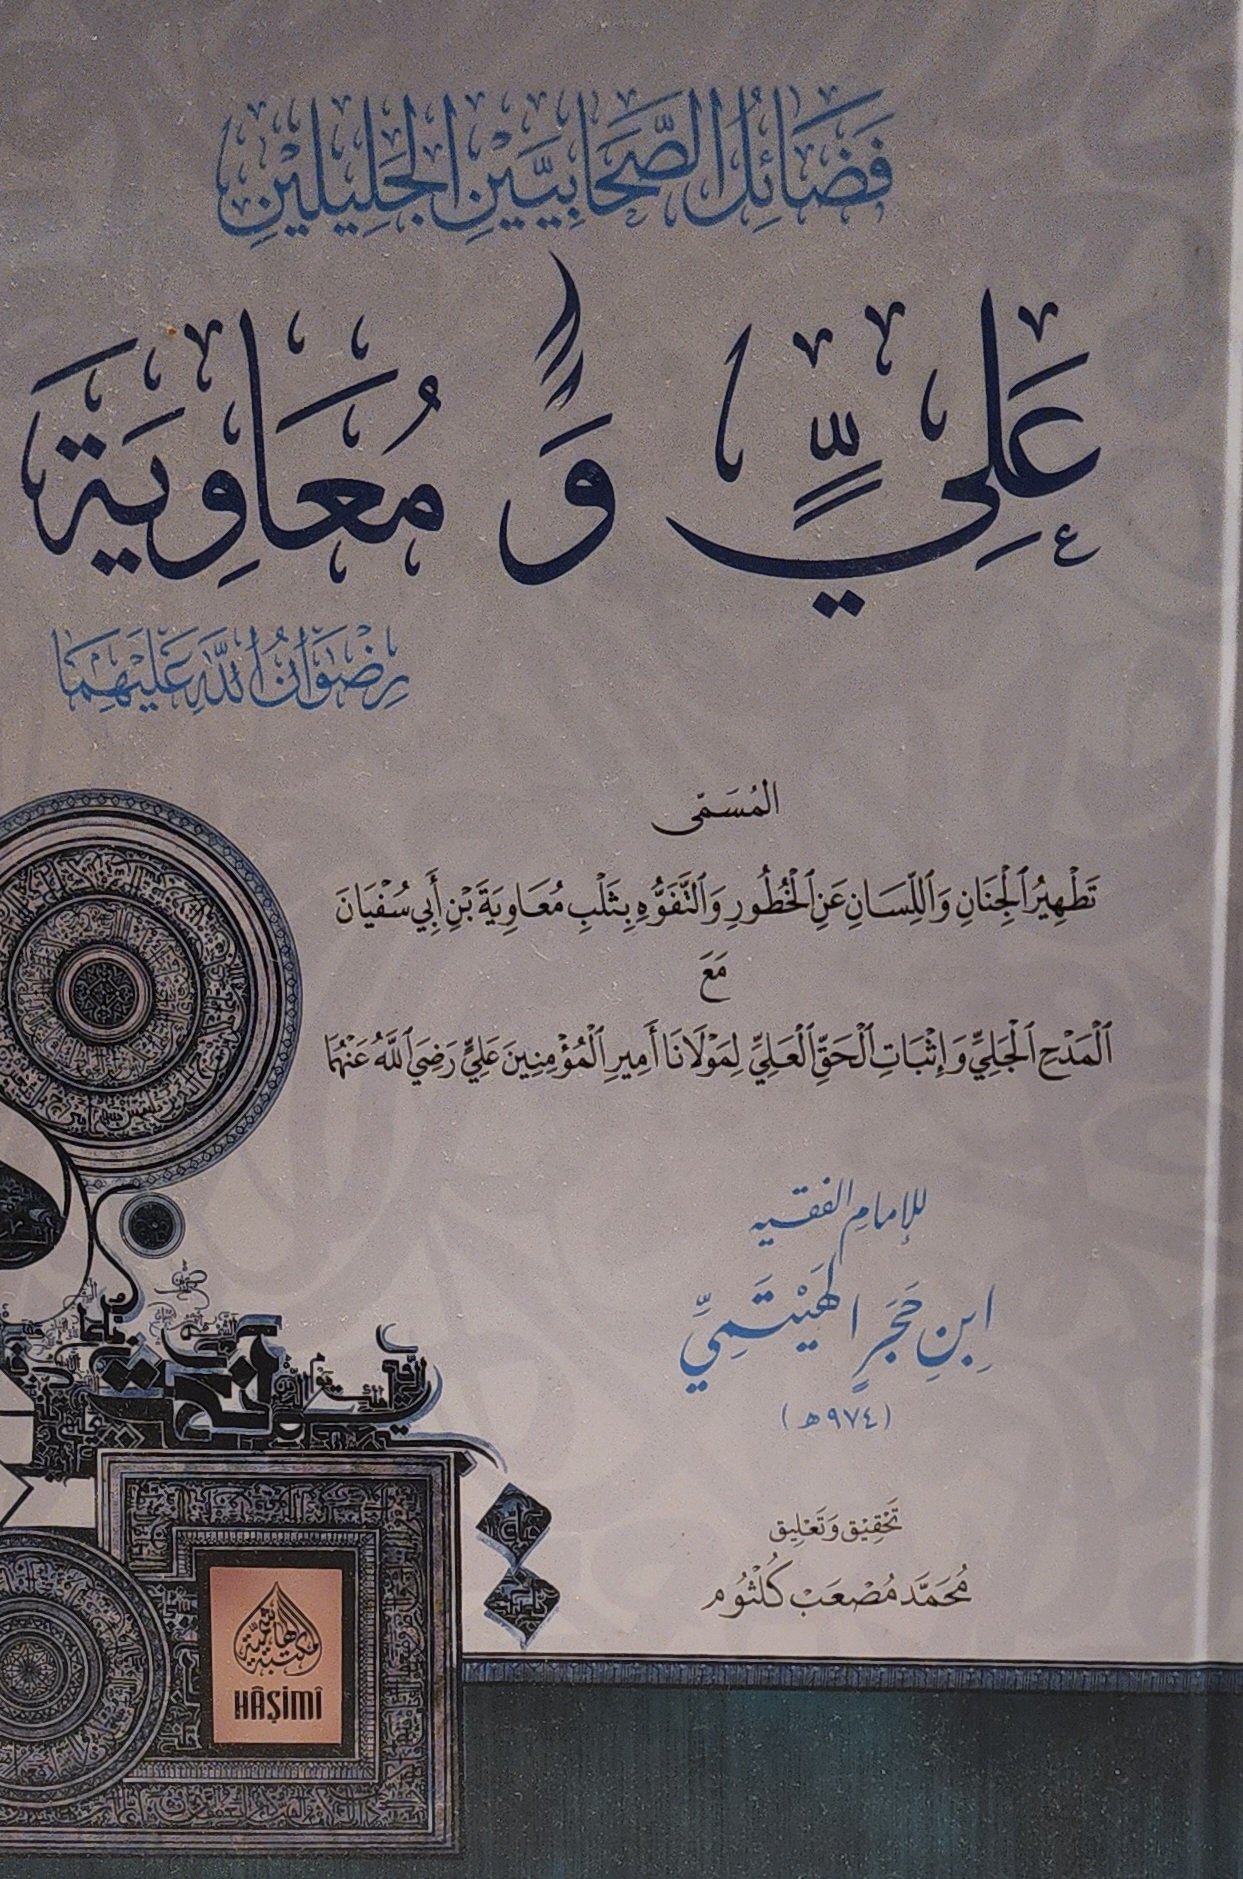 فَضَائِلُ الصَّحَابِيَّيْنِ الجَلِيلَيْنِ
عَلِيٍّ وَ مُعَاوِيَة
رِضْوَانُ اللَّهِ عَلَيْهِمَا
المُسَمّى
تَطْهِيرُ الْجِنَانِ وَاللِّسَانِ عَنِ الْخُطُورِ وَالتَّفَوُّهِ بِثَلْبِ مُعَاوِيَةَ بْنِ أَبِي سُفْيَانَ
مَعَ
الْمَدْحِ الْجَلِيِّ وَإِثْبَاتِ الْحَقِّ الْعَلِيِّ لِمَوْلَانَا أَمِيرِ الْمُؤْمِنِينَ عَلِيٍّ رَضِيَ اللَّهُ عَنْهُمَا
للإمامِ الفقيه
ابنِ حَجَرٍ الهَيْتَمِيِّ
(٩٧٤هـ)
تَحْقِيْق وَتَعْلِيق
مُحَمَّد مُصْعَبْ كُلْثُوم
مكتبة الهاشمية
HÂŞİMÎ